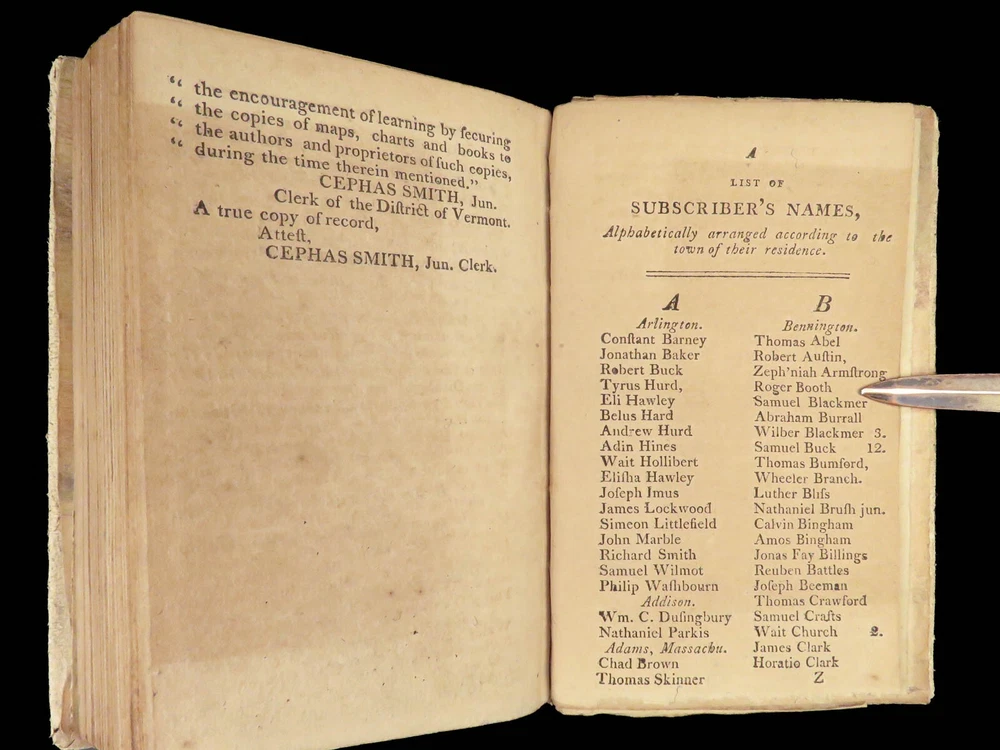 “ the encouragement of learning by ſecuring
“ the copies of maps, charts and books to
“ the authors and proprietors of ſuch copies,
“ during the time therein mentioned.”
CEPHAS SMITH, Jun.
Clerk of the Diſtrict of Vermont.
A true copy of record,
Atteſt,
CEPHAS SMITH, Jun. Clerk.
A
LIST OF
SUBSCRIBER'S NAMES,
Alphabetically arranged according to the
town of their residence.
A
Arlington.
Conſtant Barney
Jonathan Baker
Robert Buck
Tyrus Hurd,
Eli Hawley
Belus Hard
Andrew Hurd
Adin Hines
Wait Hollibert
Eliſha Hawley
Joſeph Imus
James Lockwood
Simeon Littlefield
John Marble
Richard Smith
Samuel Wilmot
Philip Waſhbourn
Addison.
Wm. C. Duſingbury
Nathaniel Parkis
Adams, Massachu.
Chad Brown
Thomas Skinner
B
Bennington.
Thomas Abel
Robert Auſtin,
Zeph'niah Armſtrong
Roger Booth
Samuel Blackmer
Abraham Burrall
Wilber Blackmer 3.
Samuel Buck 12.
Thomas Bumford,
Wheeler Branch.
Luther Bliſs
Nathaniel Bruſh jun.
Calvin Bingham
Amos Bingham
Jonas Fay Billings
Reuben Battles
Joſeph Beeman
Thomas Crawford
Samuel Crafts
Wait Church 2.
James Clark
Horatio Clark
Z